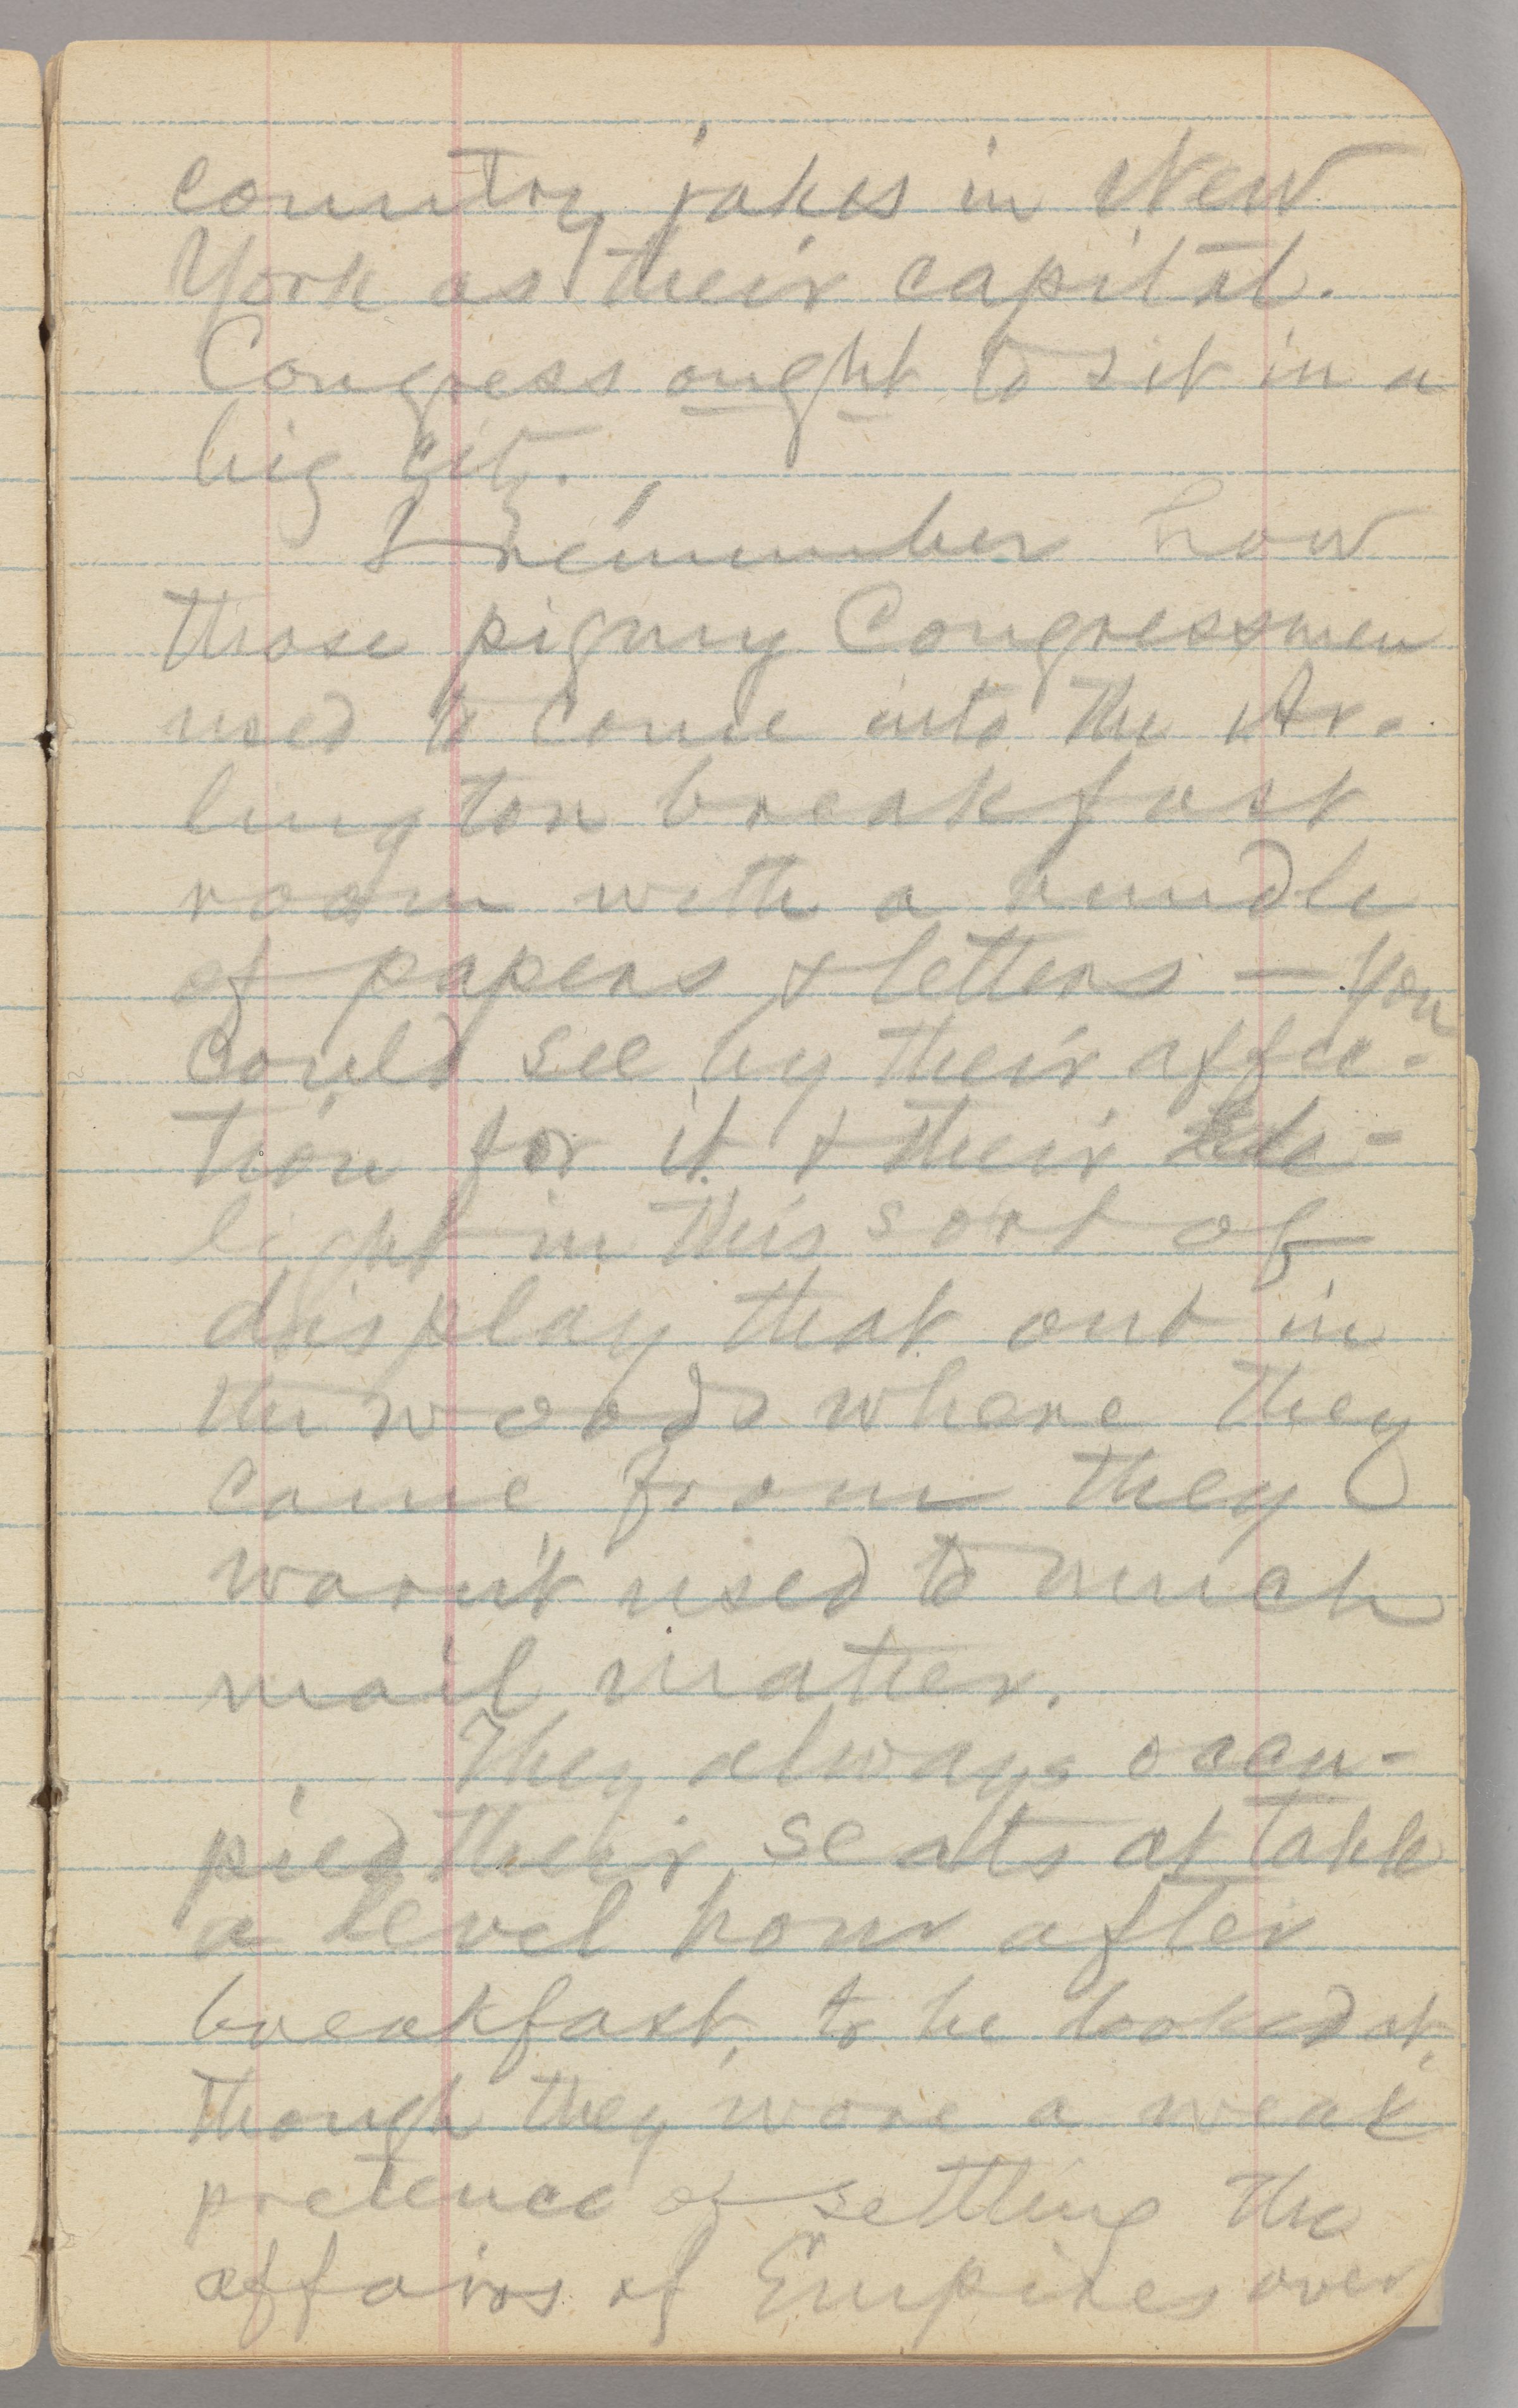 country jakes in New
York as their capital.
Congress ought to sit in a
big city.
I remember how
those pigmy Congressmen
used to come into the Ar-
lington breakfast
room with a bundle
of papers & letters — you
could see by their affec-
tion for it & their de-
light in this sort of
display that out in
the woods where they
came from they
warn't used to much
mail matter.
They always occu-
pied their seats at table
a level hour after
breakfast, to be looked at,
though they wore a weak
pretence of settling the
affairs of Empires over